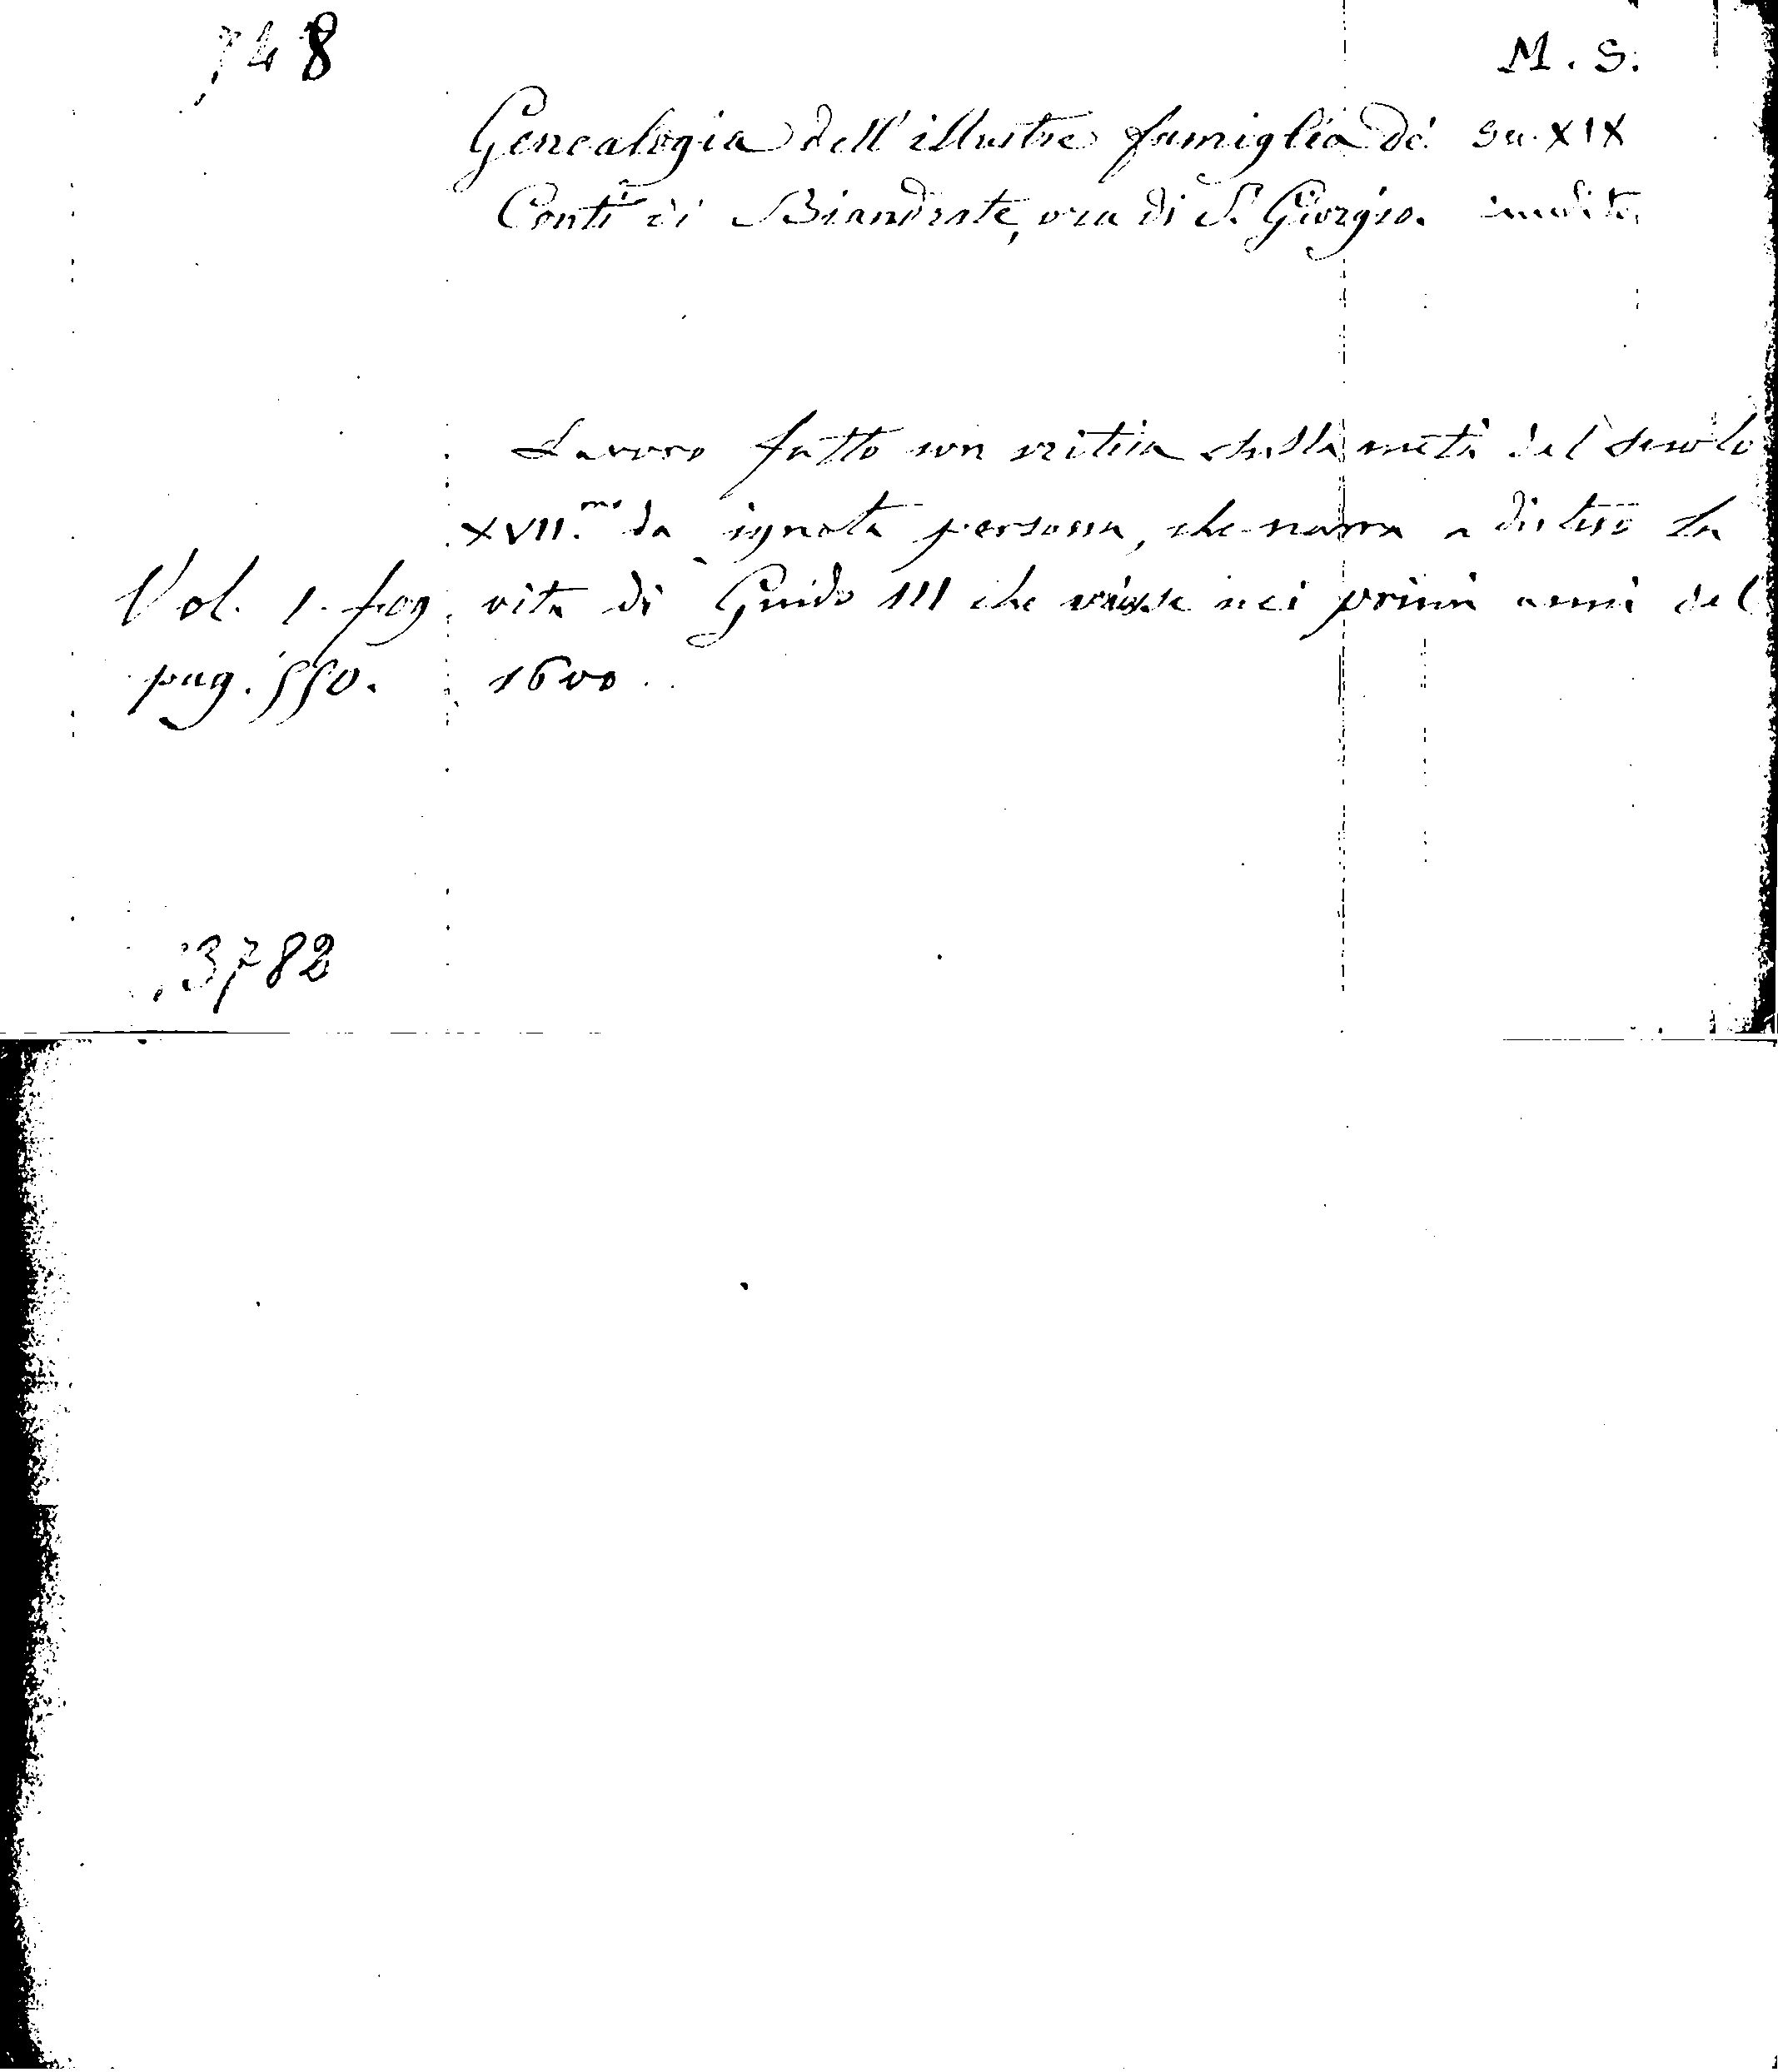 748
M. S.
Genealogia dell'illustre famiglia de' Sec. XIX
Conti di Biandrate, ora di S. Giorgio. inedito
Lavoro fatto con critica della metà del secolo
XVII.mo da ignota persona, che narra a disteso la
Vol. 1. fog. vita di Guido III che visse nei primi anni del
pag. 550. 1600
3782